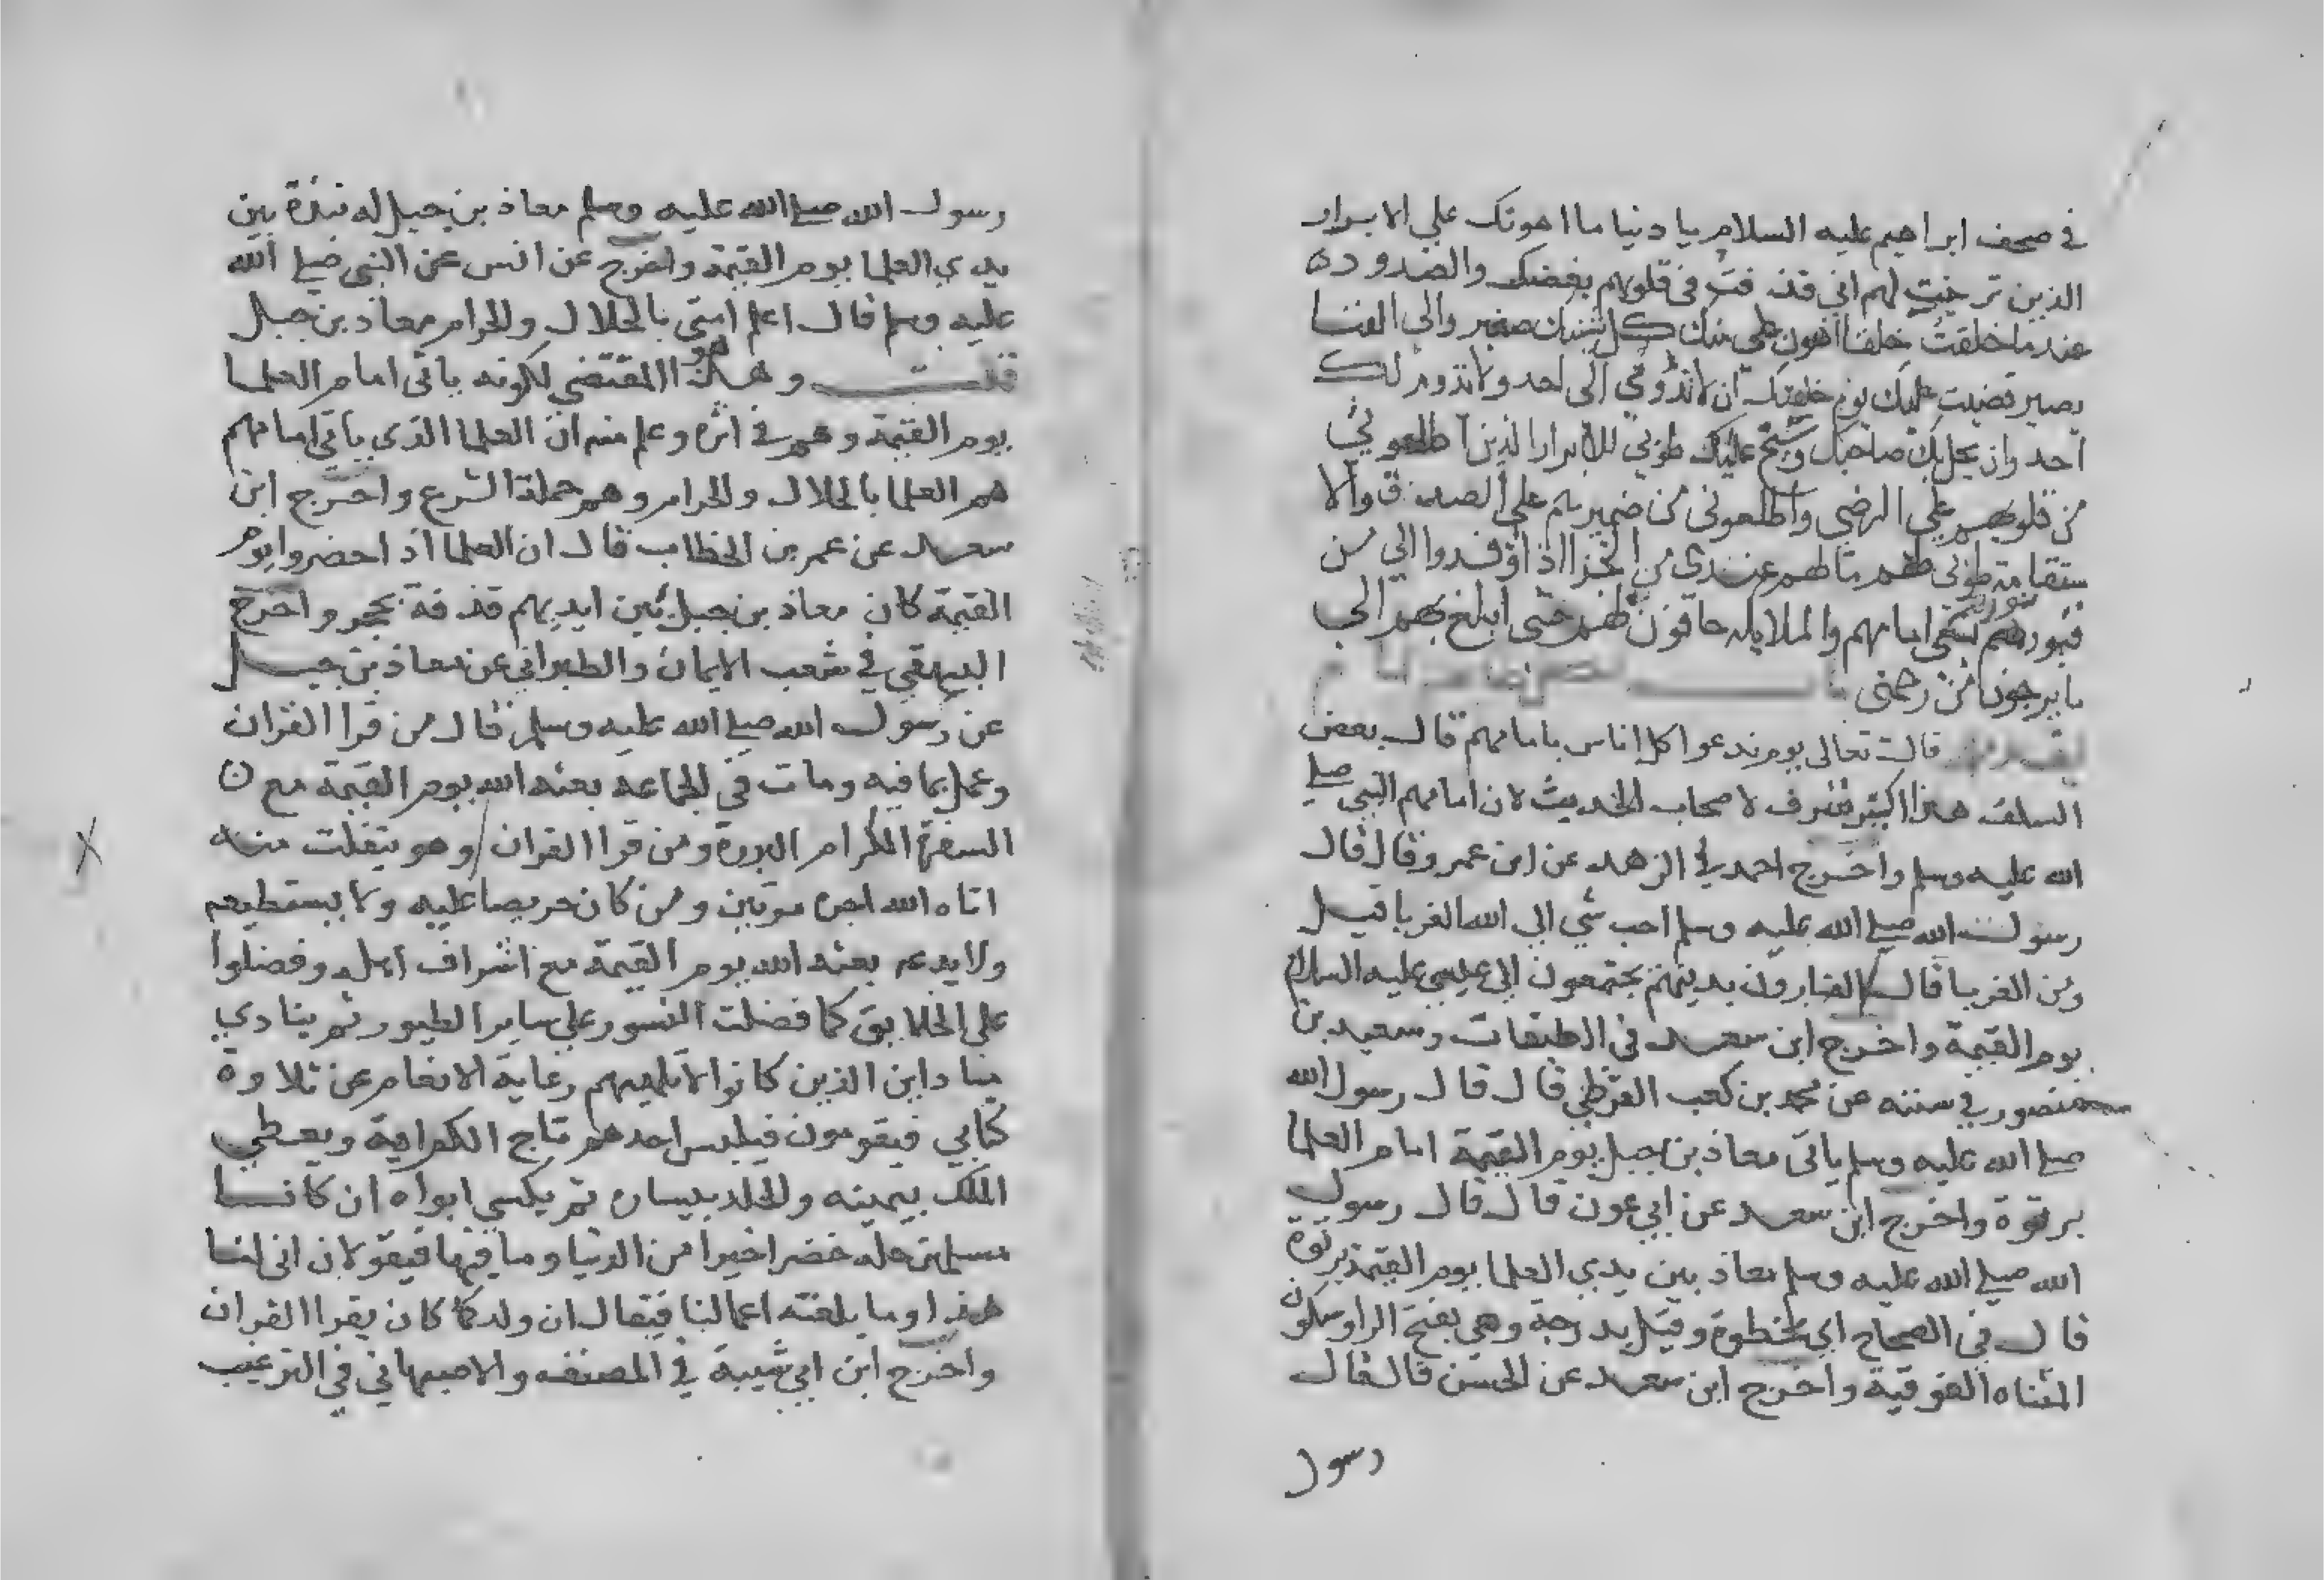 في صحف ابراهيم عليه السلام يا دنيا ما اهونك علي الابرار
الذين تزخيت لهم اني قذفت في قلوبهم بغضك والصدود
عندما خلقت خلقا اهون علي منك كل شانك صغير والي الفنا
يصير قضيت عليك يوم خلقتك ان لا تدومي الي احد ولا يدوم لك
احد وان بخل بك صاحبك وشح عليك طوبي للابرار الذين اطلعوني
من قلوبهم علي الرضي واطلعوني من ضميرهم علي الصدق والا
ستقامة طوبي لهم ما لهم عندي من الجزا اذا وفدوا الي من
قبورهم نورهم يسعي امامهم والملايكه حافون لهم حتي ابلغ بهم الي
ما يرجون من رحمتي
قال تعالي يوم ندعوا كل اناس بامامهم قال بعض
السلف هذا اكبر شرف لاصحاب الحديث لان امامهم النبي صلي
الله عليه وسلم واخرج احمد في الزهد عن ابن عمرو قال قال
رسول الله صلي الله عليه وسلم احب شي الي الله الغربا قيل
ومن الغربا قال الفارون بدينهم يجتمعون الي عيسي عليه السلام
يوم القيمة واخرج ابن سعد في الطبقات وسعيد بن
منصور في سننه عن محمد بن كعب القرظي قال قال رسول الله
صلي الله عليه وسلم ياتي معاذ بن جبل يوم القيمة امام العلما
برتوة واخرج ابن سعد عن ابي عون قال قال رسول
الله صلي الله عليه وسلم معاذ بين يدي العلما يوم القيمة برتوة
قال في الصحاح اي بخطوة وقيل بدرجة وهي بفتح الرا وسكون
المثناه الفوقية واخرج ابن سعد عن الحسن قال قال
رسول
رسول الله صلي الله عليه وسلم معاذ بن جبل له نبذة بين
يدي العلما يوم القيمة واخرج عن انس عن النبي صلي الله
عليه وسلم قال اعلم امتي بالحلال والحرام معاذ بن جبل
قلت وهذا هو المقتضي لكونه ياتي امام العلما
يوم القيمة وهم في اثره وعلم منه ان العلما الذي ياتي امامهم
هم العلما بالحلال والحرام وهم حملة الشرع واخرج ابن
سعد عن عمر بن الخطاب قال ان العلما اذا حضروا يوم
القيمة كان معاذ بن جبل بين ايديهم قذفة بحجر واخرج
البيهقي في شعب الايمان والطبراني عن معاذ بن جبل
عن رسول الله صلي الله عليه وسلم قال من قرا القران
وعمل بما فيه ومات في الجماعة بعثه الله يوم القيمة مع
السفرة الكرام البررة ومن قرا القران وهو يتفلت منه
اتاه الله اجره مرتين ومن كان حريصا عليه ولا يستطيعه
ولا يدعه بعثه الله يوم القيمة مع اشراف اهله وفضلوا
علي الخلايق كما فضلت النسور علي ساير الطيور ثم ينادي
مناد اين الذين كانوا لا تلهيهم رعاية الانعام عن تلاوة
كتابي فيقومون فيلبس احدهم تاج الكرامة ويعطي
الملك بيمينه والخلد بيساره ثم يكسي ابواه ان كانا
مسلمين حلة خضرا خيرا من الدنيا وما فيها فيقولان اني لنا
هذا وما بلغته اعمالنا فيقال ان ولدكما كان يقرا القران
واخرج ابن ابي شيبة في المصنف والاصبهاني في الترغيب